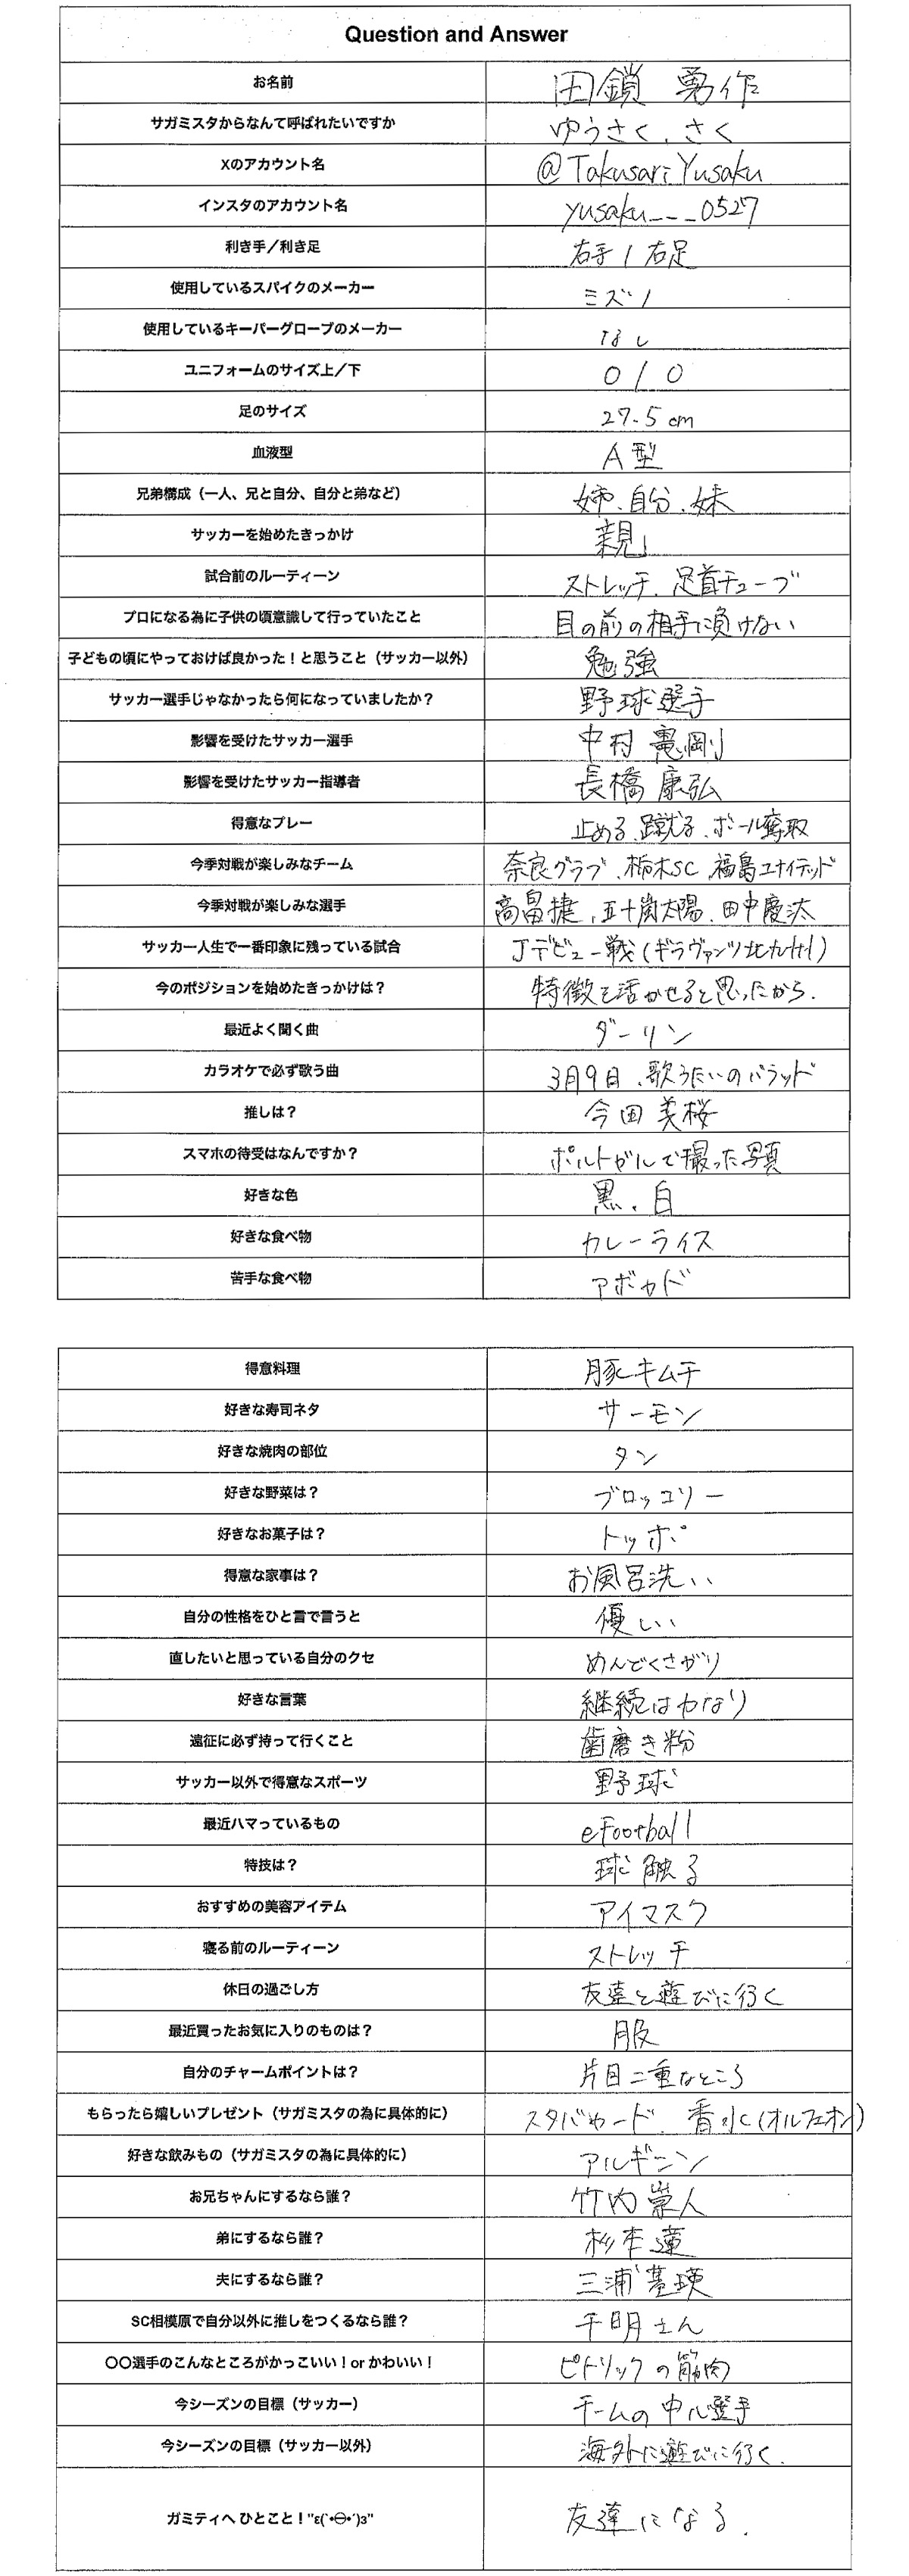 Question and Answer
お名前 田鎖 勇作
サガミスタからなんて呼ばれたいですか ゆうさく、さく
Xのアカウント名 @TakusariYusaku
インスタのアカウント名 yusaku___0527
利き手／利き足 右手 / 右足
使用しているスパイクのメーカー ミズノ
使用しているキーパーグローブのメーカー なし
ユニフォームのサイズ上／下 O / O
足のサイズ 27.5cm
血液型 A型
兄弟構成（一人、兄と自分、自分と弟など） 姉、自分、妹
サッカーを始めたきっかけ 親
試合前のルーティーン ストレッチ、足首チューブ
プロになる為に子供の頃意識して行っていたこと 目の前の相手に負けない
子どもの頃にやっておけば良かった！と思うこと（サッカー以外） 勉強
サッカー選手じゃなかったら何になっていましたか？ 野球選手
影響を受けたサッカー選手 中村 憲剛
影響を受けたサッカー指導者 長橋 康弘
得意なプレー 止める、蹴る、ボール奪取
今季対戦が楽しみなチーム 奈良クラブ、栃木SC、福島ユナイテッド
今季対戦が楽しみな選手 高畠捷、五十嵐太陽、田中慶汰
サッカー人生で一番印象に残っている試合 Jデビュー戦(ギラヴァンツ北九州)
今のポジションを始めたきっかけは？ 特徴を活かせると思ったから.
最近よく聞く曲 ダーリン
カラオケで必ず歌う曲 3月9日、歌うたいのバラッド
推しは？ 今田 美桜
スマホの待受はなんですか？ ポルトガルで撮った写真
好きな色 黒、白
好きな食べ物 カレーライス
苦手な食べ物 アボカド
得意料理 豚キムチ
好きな寿司ネタ サーモン
好きな焼肉の部位 タン
好きな野菜は？ ブロッコリー
好きなお菓子は？ トッポ
得意な家事は？ お風呂洗い
自分の性格をひと言で言うと 優しい
直したいと思っている自分のクセ めんどくさがり
好きな言葉 継続は力なり
遠征に必ず持って行くこと 歯磨き粉
サッカー以外で得意なスポーツ 野球
最近ハマっているもの eFootball
特技は？ 球触る
おすすめの美容アイテム アイマスク
寝る前のルーティーン ストレッチ
休日の過ごし方 友達と遊びに行く
最近買ったお気に入りのものは？ 服
自分のチャームポイントは？ 片目二重なところ
もらったら嬉しいプレゼント（サガミスタの為に具体的に） スタバカード、香水(オルフェオン)
好きな飲みもの（サガミスタの為に具体的に） アルギニン
お兄ちゃんにするなら誰？ 竹内崇人
弟にするなら誰？ 杉本蓮
夫にするなら誰？ 三浦基瑛
SC相模原で自分以外に推しをつくるなら誰？ 千明さん
〇〇選手のこんなところがかっこいい！or かわいい！ ピトリックの筋肉
今シーズンの目標（サッカー） チームの中心選手
今シーズンの目標（サッカー以外） 海外に遊びに行く.
ガミティへ ひとこと！"ε(´•Θ•´)з" 友達になる.